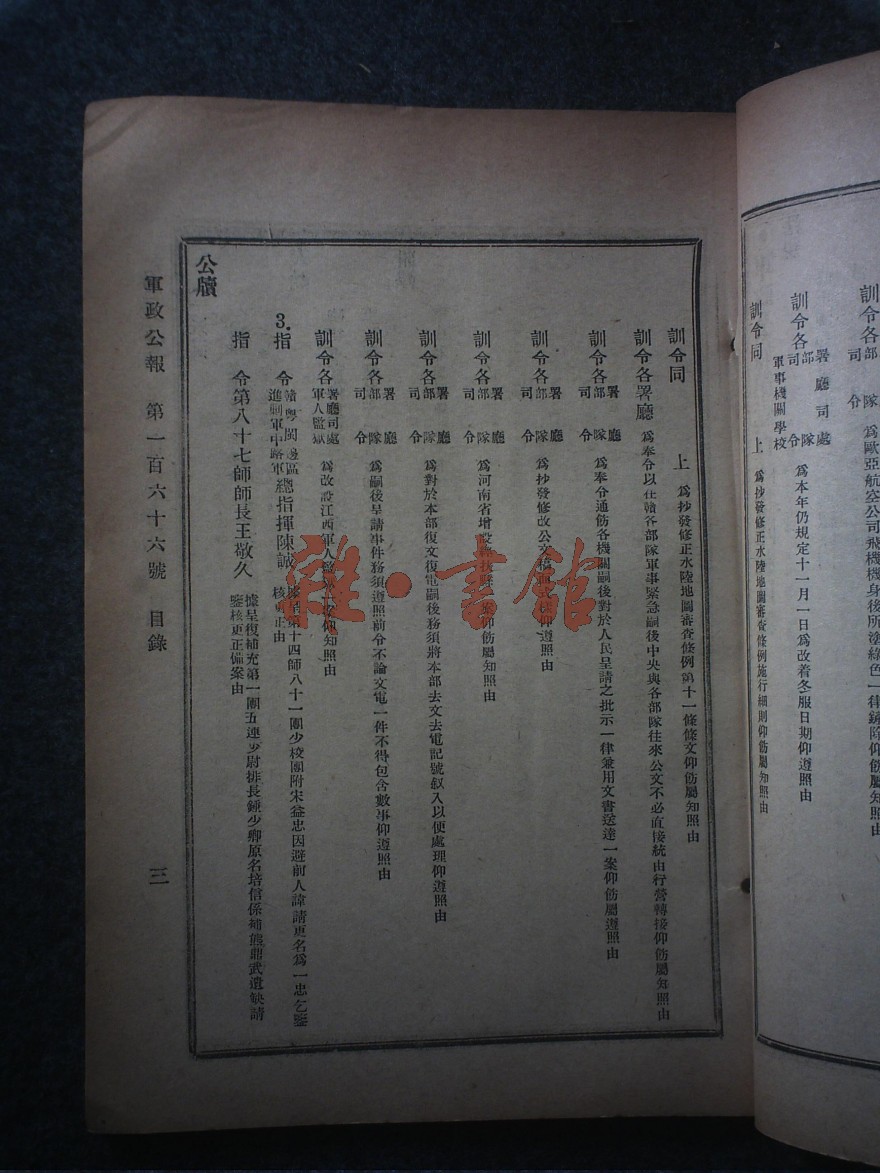 為歐亞航空公司飛機機身後所塗綠色一律鏟除仰飭屬知照由
訓令各部隊署廳司處軍事機關學校 為本年仍規定十一月一日為改着冬服日期仰遵照由
訓令同上 為抄發修正水陸地圖審查條例施行細則仰飭屬知照由
訓令同上 為抄發修正水陸地圖審查條例第十一條條文仰飭屬知照由
訓令各署廳司部隊 為奉令以在贛各部隊軍事緊急嗣後中央與各部隊往來公文不必直接統由行營轉接仰飭屬知照由
訓令各部隊署廳司令 為奉令通飭各機關嗣後對於人民呈請之批示一律兼用文書送達一案仰飭屬遵照由
訓令各部隊署廳司令 為抄發修改公文稿面式樣仰遵照由
訓令各部隊署廳司令 為河南省增設縣仰飭屬知照由
訓令各部隊署廳司令 為對於本部復文復電嗣後務須將本部去文去電記號叙入以便處理仰遵照由
訓令各部隊署廳司令 為嗣後呈請事件務須遵照前令不論文電一件不得包含數事仰遵照由
訓令各署廳司處軍人監獄 為改設江西軍人監仰知照由
3.指令贛粵閩邊區進剿軍中路軍總指揮陳誠 據呈第十四師八十一團少校團附宋益忠因避前人諱請更名為一忠乞鑒核更正由
指令第八十七師師長王敬久 據呈復補充第一團五連少尉排長鍾少卿原名培信係補熊鼎武遺缺請鑒核更正備案由
公牘
軍政公報 第一百六十六號 目錄
三
雜·書館